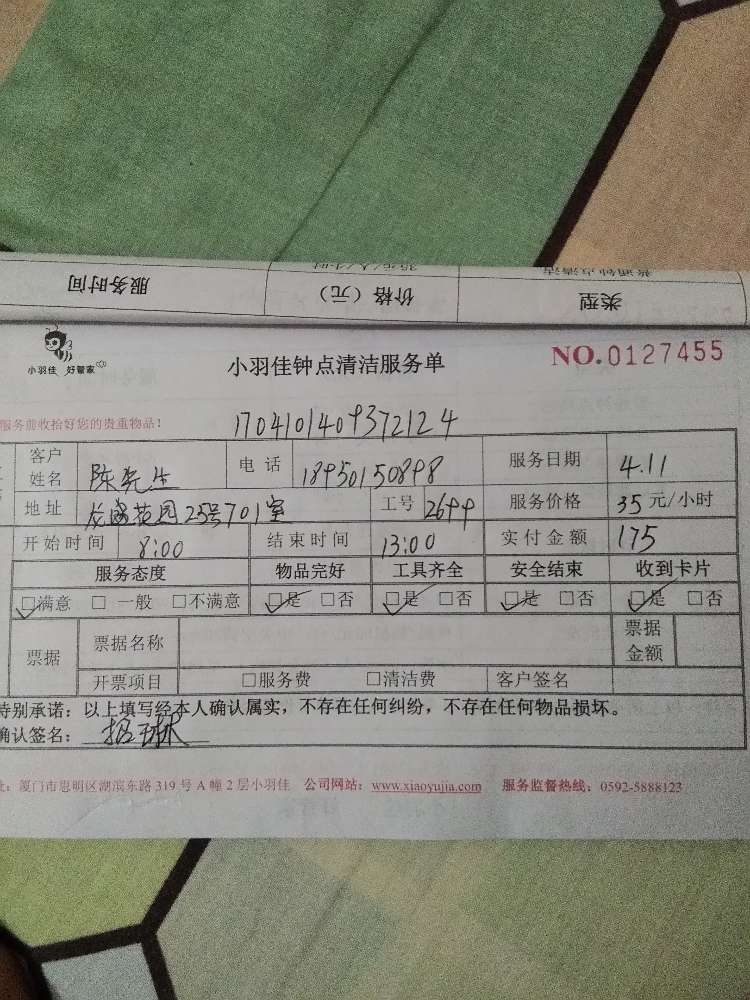 服务时间 价格（元） 类型
小羽佳 好管家
小羽佳钟点清洁服务单
NO.0127455
服务前收拾好您的贵重物品！
1704101409372124
客户姓名 陈先生 电话 18950150898 服务日期 4.11
地址 龙盛花园25号701室 工号 2699 服务价格 35 元/小时
开始时间 8:00 结束时间 13:00 实付金额 175
服务态度 物品完好 工具齐全 安全结束 收到卡片
☑满意 □一般 □不满意 ☑是 □否 ☑是 □否 ☑是 □否 ☑是 □否
票据 票据名称 票据金额
开票项目 □服务费 □清洁费 客户签名
特别承诺：以上填写经本人确认属实，不存在任何纠纷，不存在任何物品损坏。
确认签名：
址：厦门市思明区湖滨东路 319 号 A 幢 2 层小羽佳 公司网站：www.xiaoyujia.com 服务监督热线：0592-5888123